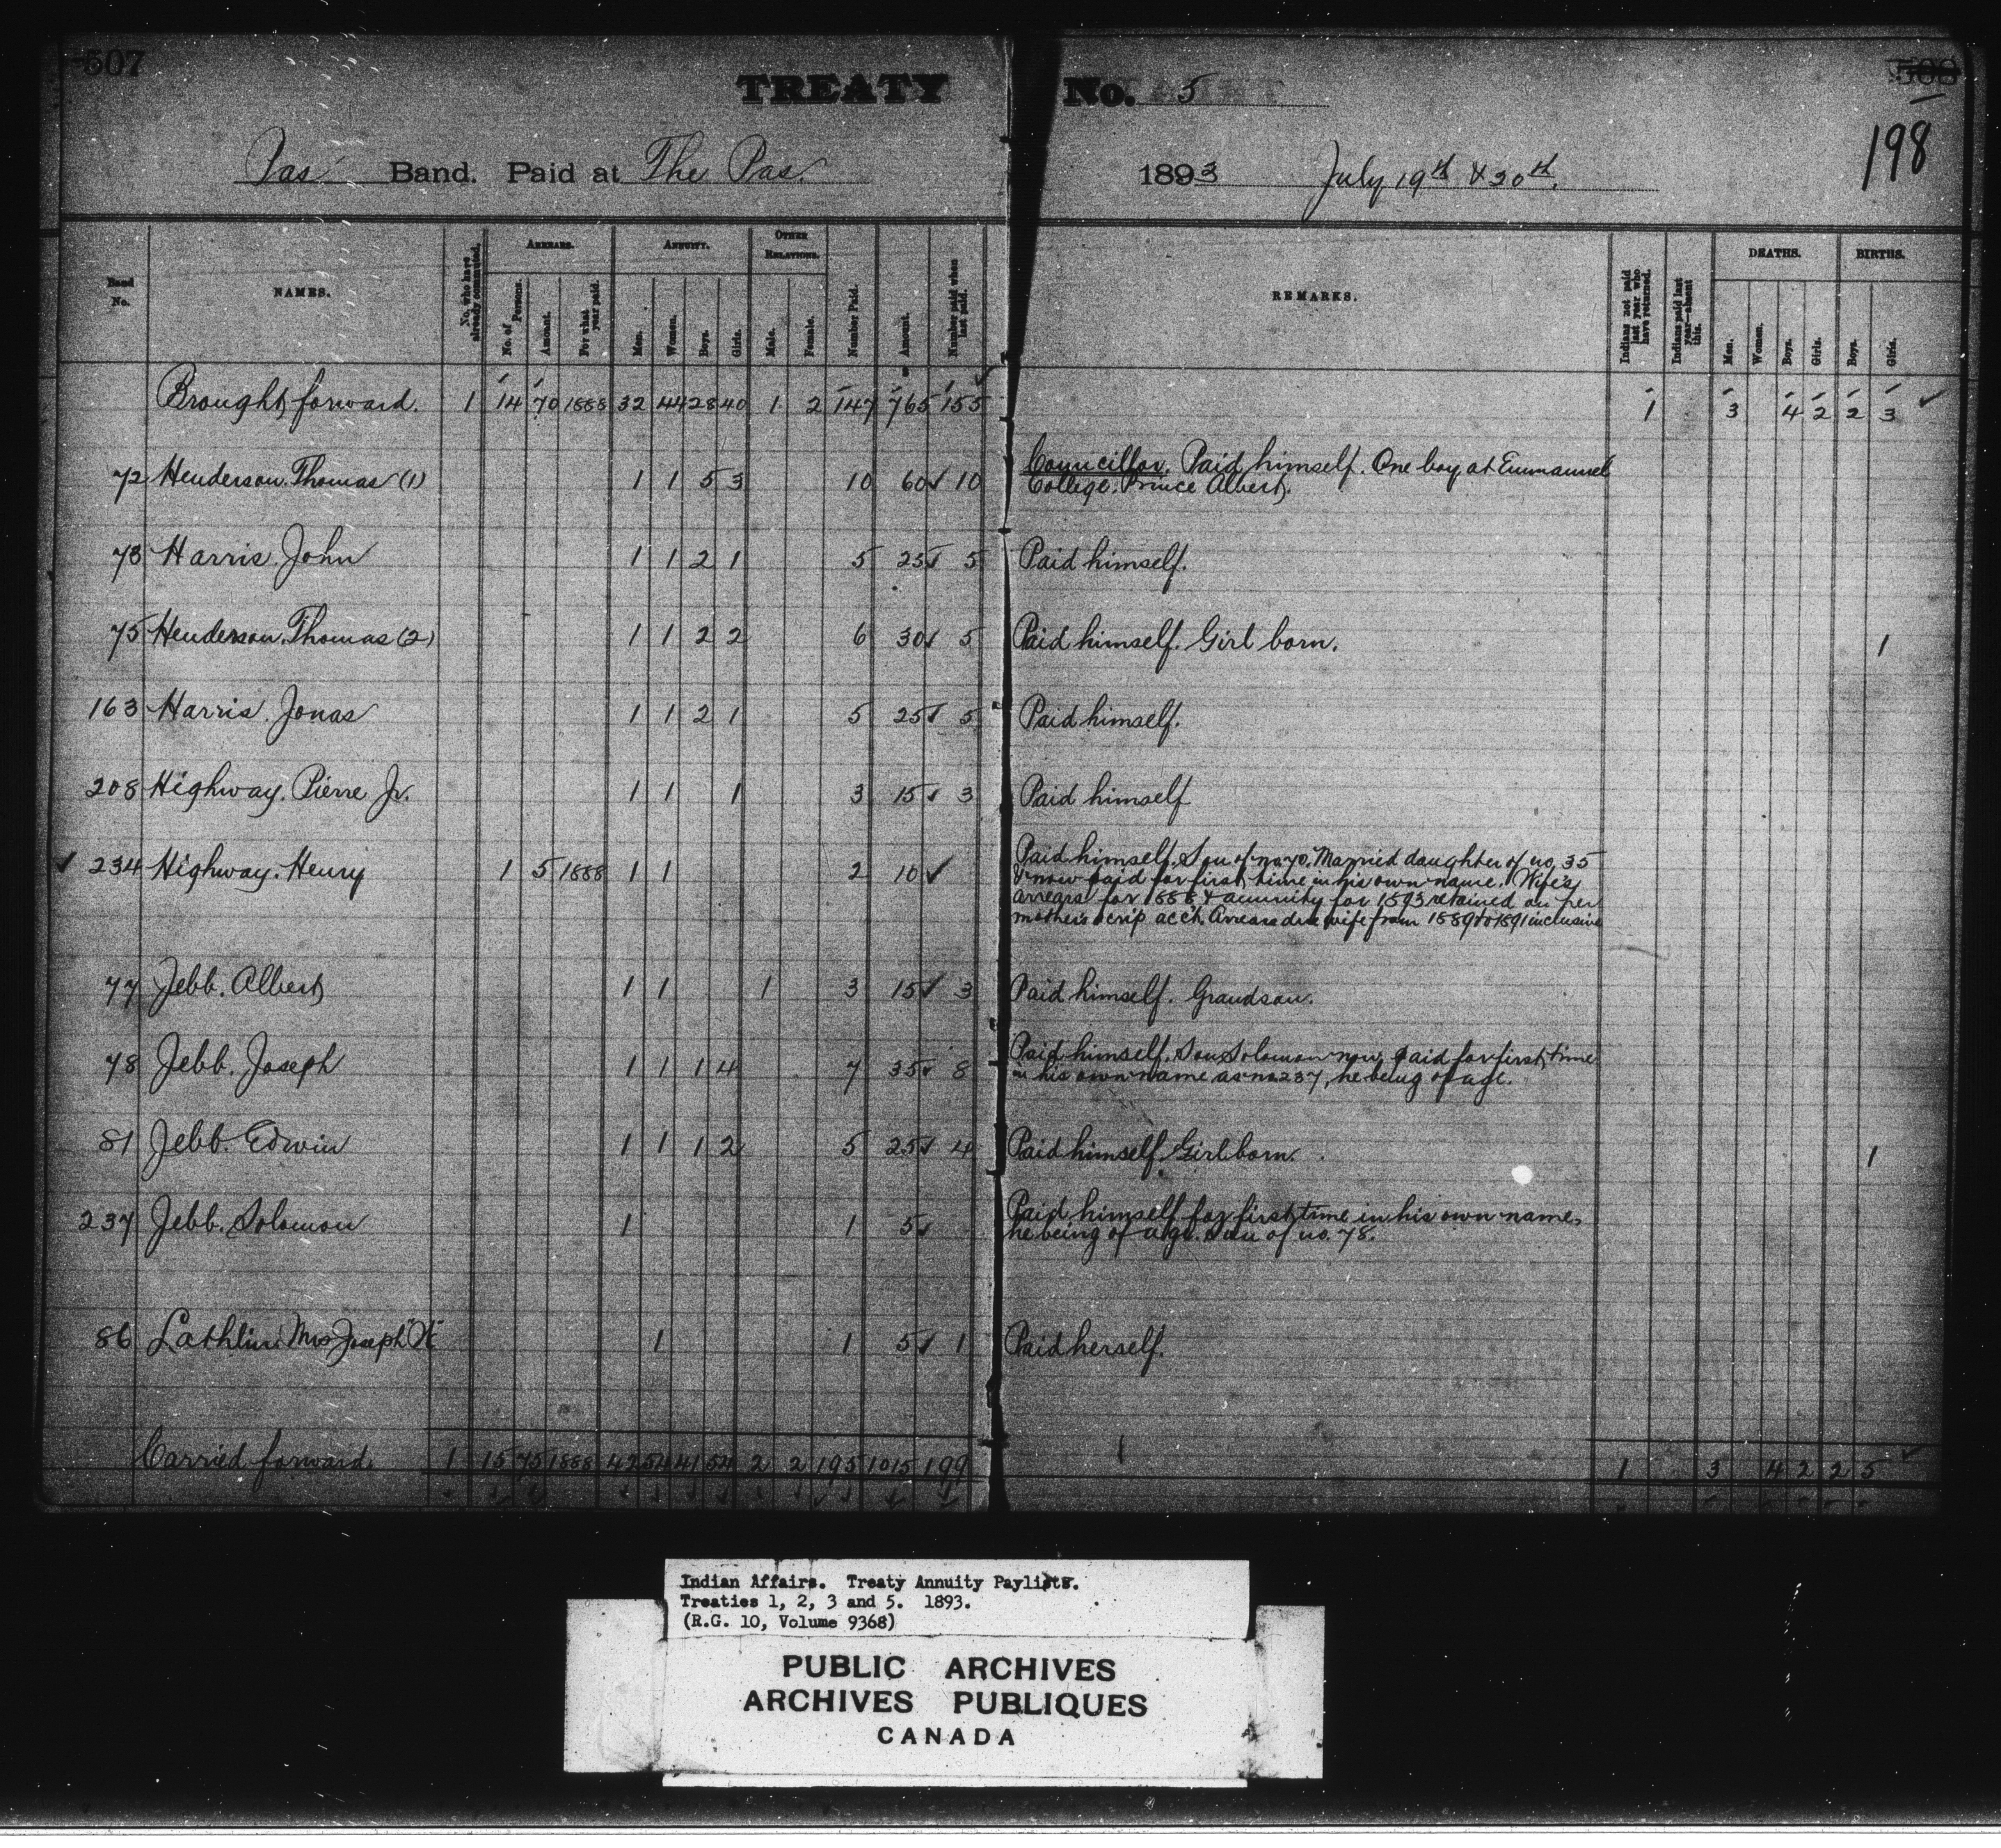 507
508
198
TREATY No. 5
Pas Band. Paid at The Pas. 1893 July 19th & 20th.
Band No.
NAMES.
No. who have already commuted.
ARREARS.
No. of Persons.
Amount.
For what year paid.
ANNUITY.
Men.
Women.
Boys.
Girls.
OTHER RELATIONS.
Male.
Female.
Number Paid.
Amount.
Number paid when last paid.
REMARKS.
Indians not paid last year who have returned.
Indians paid last year—absent this.
DEATHS.
Men.
Women.
Boys.
Girls.
BIRTHS.
Boys.
Girls.
Brought forward. 1 14 70 1888 32 44 28 40 1 2 147 765 155 1 3 4 2 2 3
72 Henderson. Thomas (1) 1 1 5 3 10 60 10 Councillor. Paid himself. One boy at Emmanuel
College. Prince Albert.
73 Harris. John 1 1 2 1 5 25 5 Paid himself.
75 Henderson. Thomas (2) 1 1 2 2 6 30 5 Paid himself. Girl born. 1
163 Harris. Jonas 1 1 2 1 5 25 5 Paid himself.
208 Highway. Pierre Jr. 1 1 1 3 15 3 Paid himself
234 Highway. Henry 1 5 1888 1 1 2 10 Paid himself. Son of no 70. Married daughter of no. 35
& now paid for first time in his own name. Wife's
arrears for 1888 & annuity for 1893 retained on her
mother's scrip acc't. Arrears due wife from 1889 to 1891 inclusive
77 Jebb. Albert 1 1 1 3 15 3 Paid himself. Grandson.
78 Jebb. Joseph 1 1 1 4 7 35 8 Paid himself. Son Solomon now paid for first time
in his own name as no 237, he being of age.
81 Jebb. Edwin 1 1 1 2 5 25 4 Paid himself. Girl born. 1
237 Jebb. Solomon 1 1 5 Paid himself for first time in his own name,
he being of age. Son of no. 78.
86 Lathlin. Mrs Joseph 1 1 5 1 Paid herself.
Carried forward. 1 15 75 1888 42 54 41 54 2 2 195 1015 199 1 1 3 4 2 2 5
Indian Affairs. Treaty Annuity Paylists.
Treaties 1, 2, 3 and 5. 1893.
(R.G. 10, Volume 9368)
PUBLIC ARCHIVES
ARCHIVES PUBLIQUES
CANADA